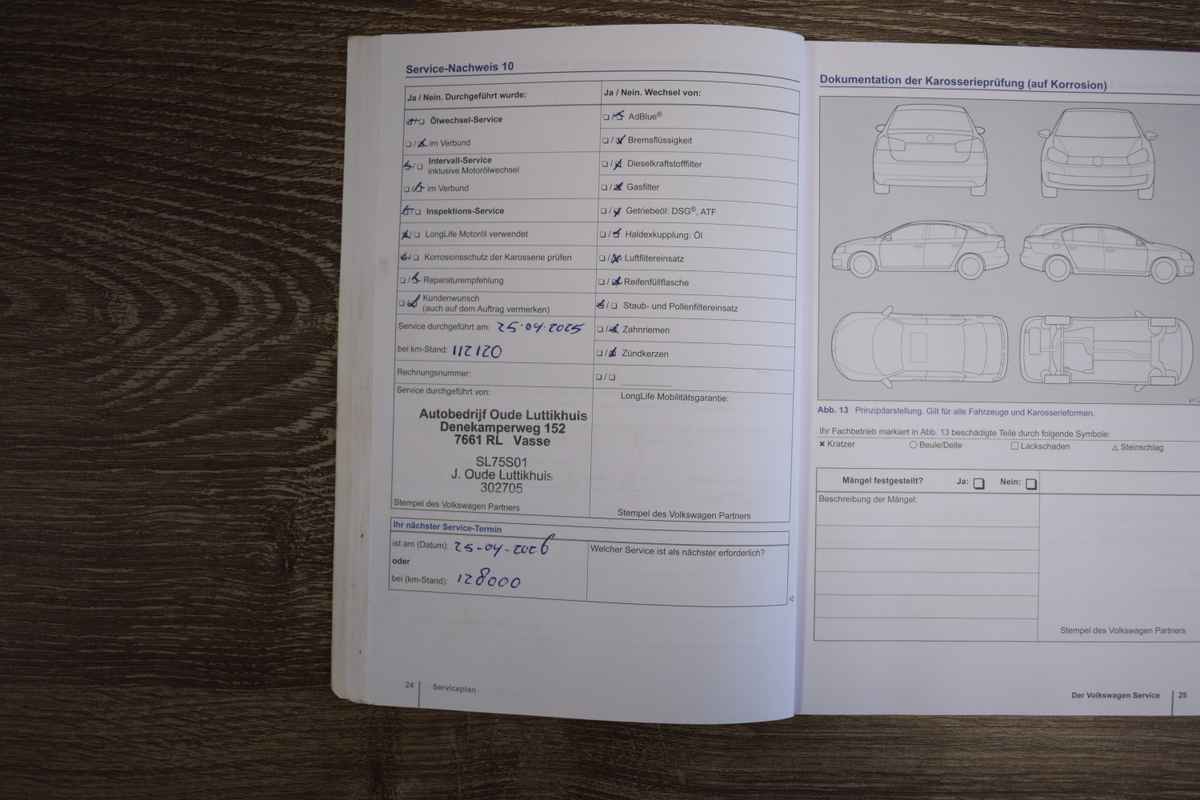 Service-Nachweis 10
Ja / Nein. Durchgeführt wurde:
Ölwechsel-Service
im Verbund
Intervall-Service
inklusive Motorölwechsel
im Verbund
Inspektions-Service
LongLife Motoröl verwendet
Korrosionsschutz der Karosserie prüfen
Reparaturempfehlung
Kundenwunsch
(auch auf dem Auftrag vermerken)
Service durchgeführt am: 25-04-2025
bei km-Stand: 112120
Rechnungsnummer:
Service durchgeführt von:
Autobedrijf Oude Luttikhuis
Denekamperweg 152
7661 RL Vasse
SL75S01
J. Oude Luttikhuis
302705
Stempel des Volkswagen Partners
Ja / Nein. Wechsel von:
AdBlue®
Bremsflüssigkeit
Dieselkraftstofffilter
Gasfilter
Getriebeöl: DSG®, ATF
Haldexkupplung: Öl
Luftfiltereinsatz
Reifenfüllflasche
Staub- und Pollenfiltereinsatz
Zahnriemen
Zündkerzen
LongLife Mobilitätsgarantie:
Stempel des Volkswagen Partners
Ihr nächster Service-Termin
ist am (Datum): 25-04-2026
oder
bei (km-Stand): 128000
Welcher Service ist als nächster erforderlich?
24 Serviceplan
Dokumentation der Karosserieprüfung (auf Korrosion)
Abb. 13 Prinzipdarstellung. Gilt für alle Fahrzeuge und Karosserieformen.
Ihr Fachbetrieb markiert in Abb. 13 beschädigte Teile durch folgende Symbole:
× Kratzer ○ Beule/Delle □ Lackschaden △ Steinschlag
Mängel festgestellt? Ja: Nein:
Beschreibung der Mängel:
Stempel des Volkswagen Partners
Der Volkswagen Service 25